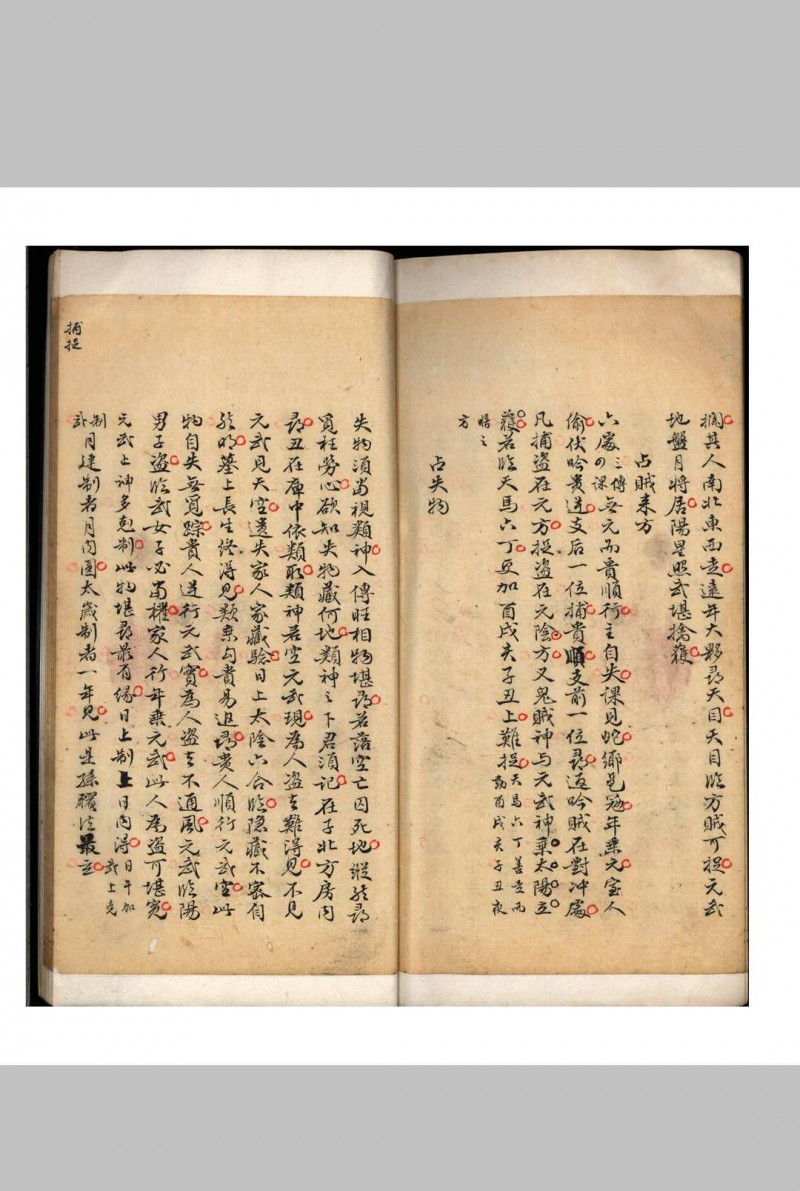 捌其人南北東西走遠年大夥尋天目天目臨方賊可捉元武
地盤月將居陽星照武堪擒獲
占賊来方
六處三傳四課無元而貴順行主自失課見蛇鄉邑年乘元空人
偷伏吟貴逆支后一位捕貴順支前一位尋返吟賊在對冲處
凡捕盜在元方捉盜在元陰方又鬼賊神与元武神乘太陽立
獲若臨天馬六丁更加酉戌亥子丑上難捉天馬六丁善走而
酉戌亥子丑夜
方
占失物
失物須當視類神入傳旺相物堪尋若落空亡囚死地縱然尋
覓枉勞心欲知失物藏何地類神之下君須記在子北方房內
尋丑在庫中依類取類神若空元武現為人盜去難得見不見
元武見天空遺失家人家藏驗日上太陰六合臨隱藏不密自
然明墓上長生終得見類乘勾貴易追尋貴人順行元武空此
物自失無覓踪貴人逆行元武實為人盜去不通風元武臨陽
男子盜臨武女子必當權家人行年乘元武此人為盜可堪究
元武上神多克制此物堪尋最有緣日上制上日內得日干加
武上克
制
武月建制者月內圓太歲制者一年見此是孫臏法最玄
捕捉